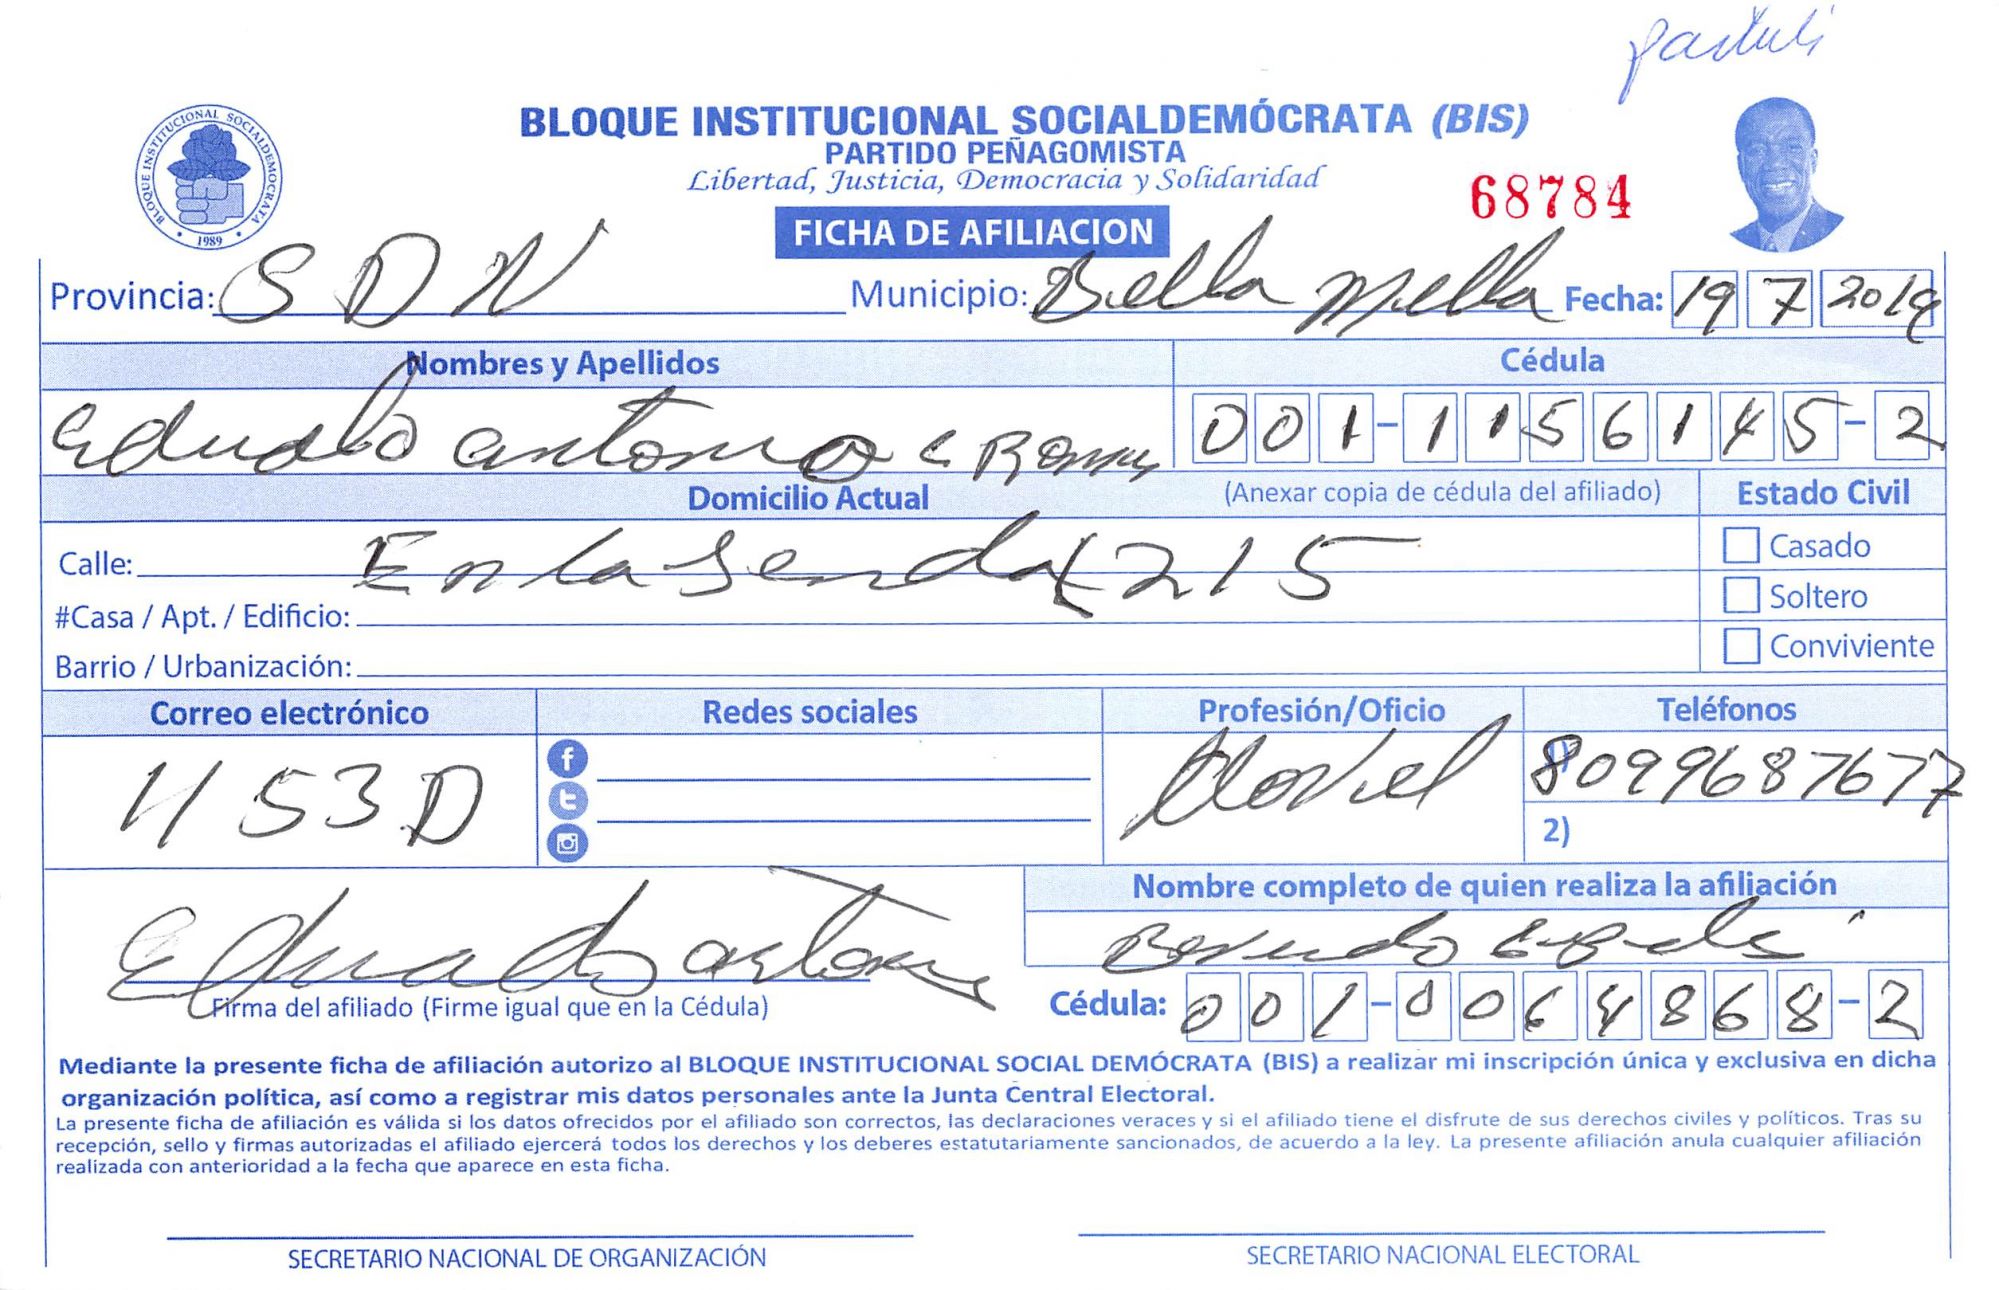 BLOQUE INSTITUCIONAL SOCIALDEMÓCRATA (BIS)
PARTIDO PEÑAGOMISTA
Libertad, Justicia, Democracia y Solidaridad
68784
BLOQUE INSTITUCIONAL SOCIALDEMOCRATA
1989
FICHA DE AFILIACION
Provincia: S D N Municipio: Bella Mella Fecha: 19 7 2019
Nombres y Apellidos Cédula
Eduardo antonio 001-1156145-2
Domicilio Actual (Anexar copia de cédula del afiliado) Estado Civil
Calle: En la Senda 215 Casado
#Casa / Apt. / Edificio: Soltero
Barrio / Urbanización: Conviviente
Correo electrónico Redes sociales Profesión/Oficio Teléfonos
453D 1) 8099687677
2)
Nombre completo de quien realiza la afiliación
Eduardo antonio
Firma del afiliado (Firme igual que en la Cédula) Cédula: 001-0064868-2
Mediante la presente ficha de afiliación autorizo al BLOQUE INSTITUCIONAL SOCIAL DEMÓCRATA (BIS) a realizar mi inscripción única y exclusiva en dicha
organización política, así como a registrar mis datos personales ante la Junta Central Electoral.
La presente ficha de afiliación es válida si los datos ofrecidos por el afiliado son correctos, las declaraciones veraces y si el afiliado tiene el disfrute de sus derechos civiles y políticos. Tras su
recepción, sello y firmas autorizadas el afiliado ejercerá todos los derechos y los deberes estatutariamente sancionados, de acuerdo a la ley. La presente afiliación anula cualquier afiliación
realizada con anterioridad a la fecha que aparece en esta ficha.
SECRETARIO NACIONAL DE ORGANIZACIÓN SECRETARIO NACIONAL ELECTORAL